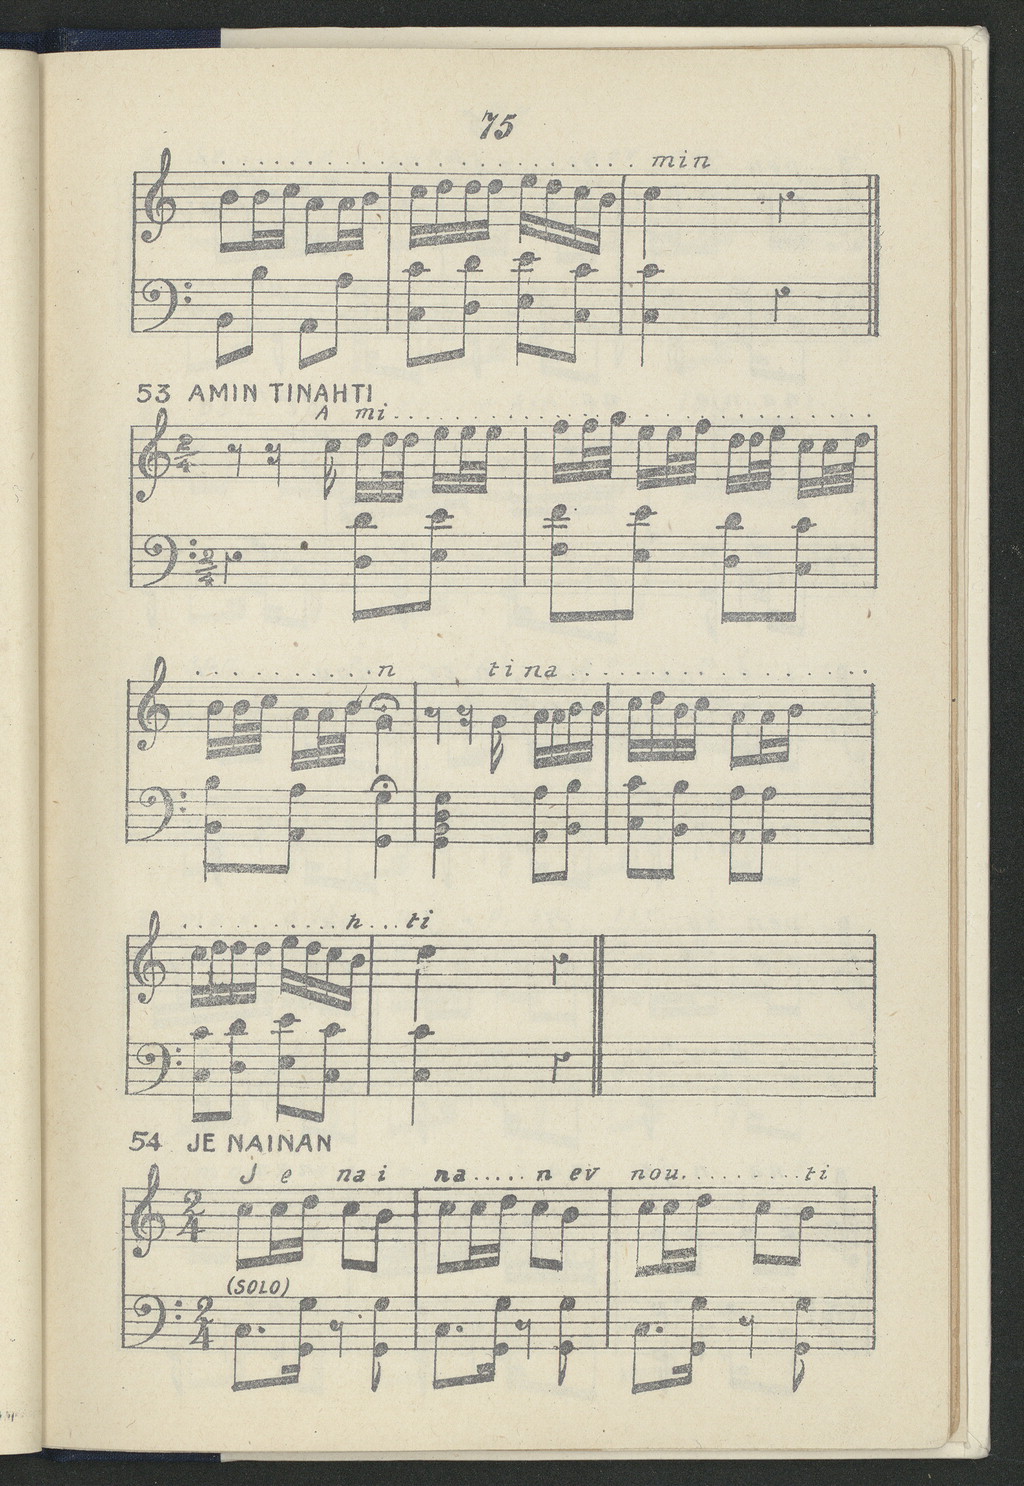 75
. . . . . . . . . . . . . . . . . . . min
53 AMIN TINAHTI
A mi . . . . . . . . . . . . . . . . . . . . . .
2/4
2/4
. . . . . . . . . n ti na . . . . . . . . . . . . .
. . . . . . . . . . h . . . ti
54 JE NAINAN
J e na i na ..... n ev nou. . . . . . . . . ti
2/4
(SOLO)
2/4